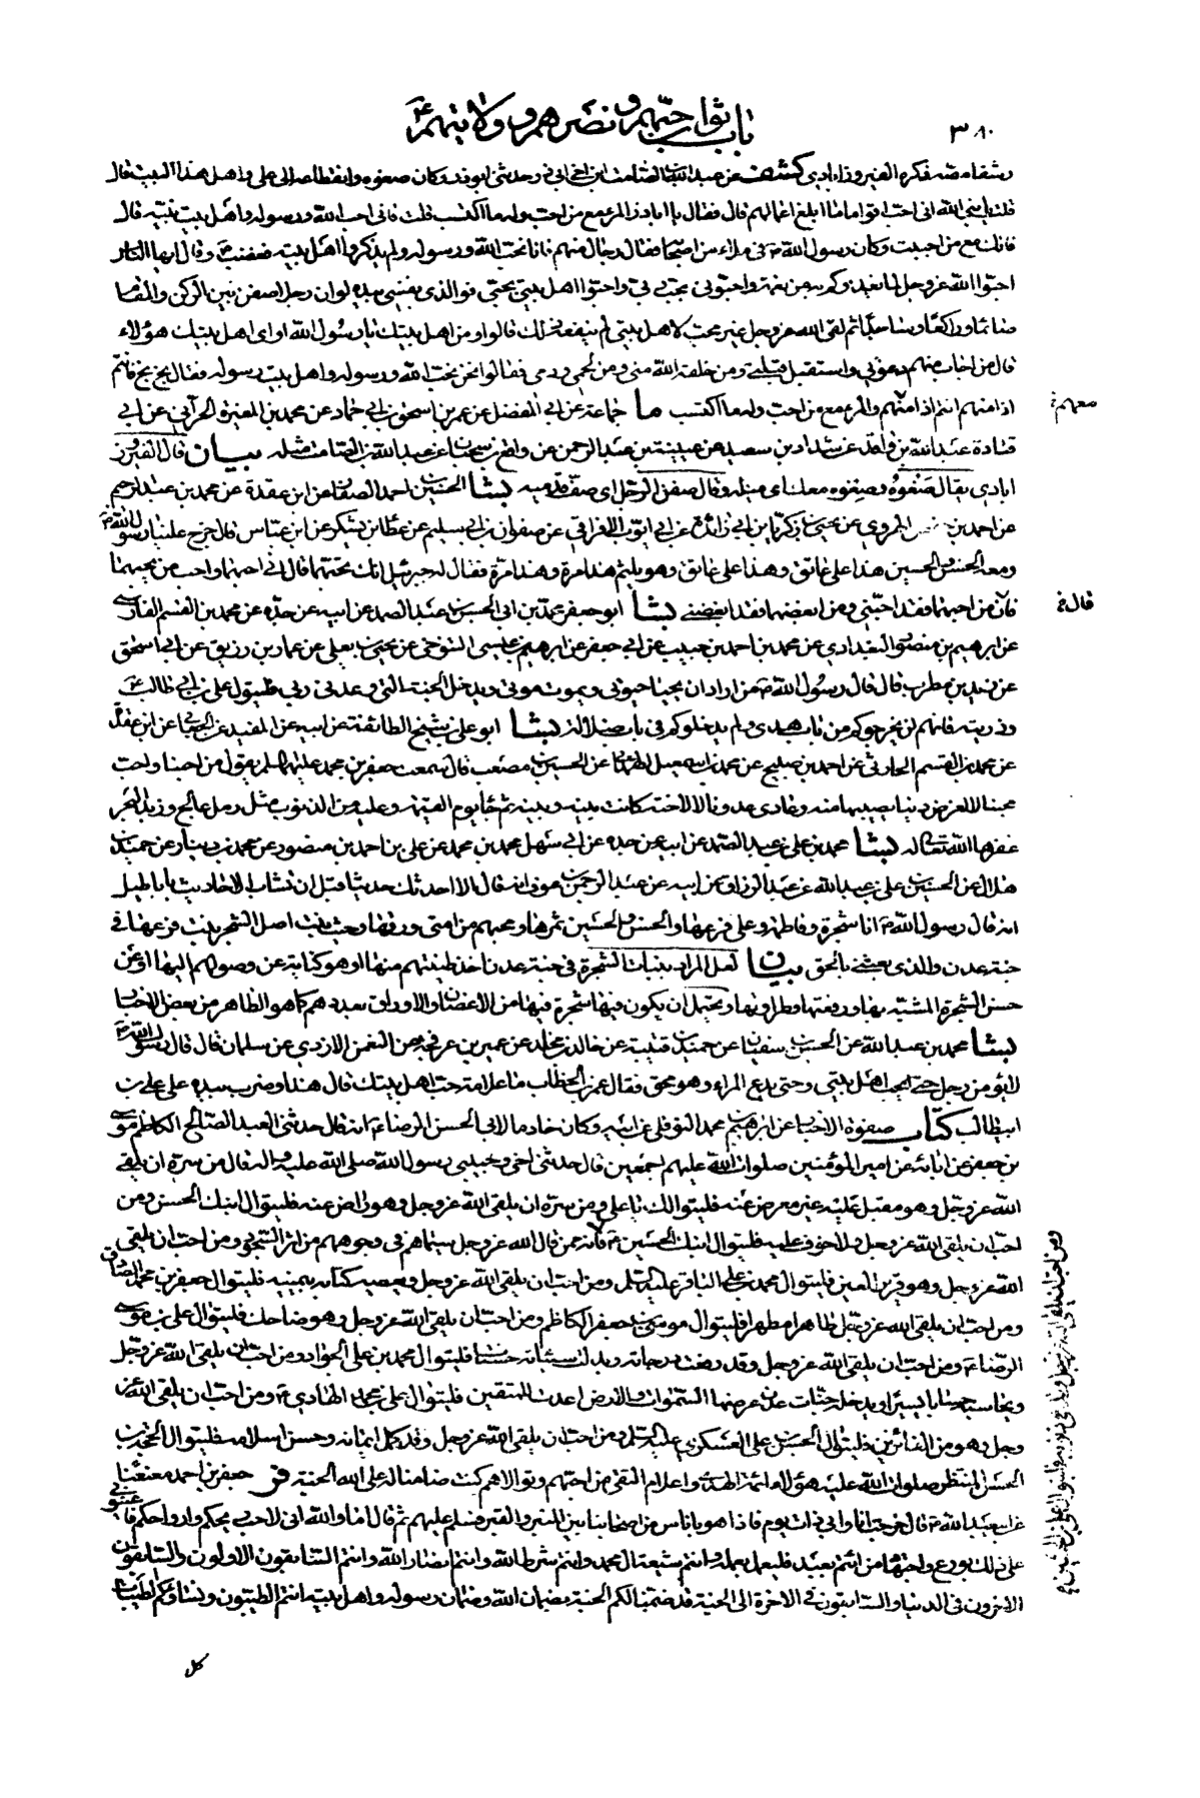 ٣٨٠
باب ثواب حبّهم ونصرهم وولايتهم ع
وشقاء منه ذكره الفيروزآبادي كشف عن عبد الله بن الصامت ابن اخي ابي ذر حدثني ابو ذر وكان صغوه وانقطاعه الى علي واهل هذا البيت قال
قلت يا نبي الله اني احب اقواما ما ابلغ اعمالهم قال فقال يا ابا ذر المرء مع من احب وله ما اكتسب قلت فاني احب الله ورسوله واهل بيت نبيه قال
فانك مع من احببت وكان رسول الله ص في ملاء من اصحابه فقال رجال منهم فانا نحب الله ورسوله ولم يذكروا اهل بيته فغضب ص وقال ايها الناس
احبوا الله عز وجل لما يغذوكم به من نعمة واحبوني بحب ربي واحبوا اهل بيتي بحبي فوالذي نفسي بيده لو ان رجلا صفن بين الركن والمقام
صائما وراكعا وساجدا ثم لقي الله عز وجل غير محب لاهل بيتي لم ينفعه ذلك قالوا ومن اهل بيتك يا رسول الله او اي اهل بيتك هؤلاء
قال من اجاب منهم دعوتي واستقبل قبلتي ومن خلقه الله مني ومن لحمي ودمي فقالوا نحن نحب الله ورسوله واهل بيت رسوله فقال بخ بخ فانتم
اذا منهم انتم اذا منهم والمرء مع من احب وله ما اكتسب ما جماعة عن ابي المفضل عن عمر بن اسحق بن ابي حماد عن محمد بن المغيرة الحراني عن ابي
معهم خ
قتادة عبد الله بن واقد عن شداد بن سعيد عن عيينة بن عبد الرحمن عن واقع بن سحبان عن عبد الله بن الصامت مثله بيان قال الفيروز
ابادي يقال صغوه وصغوه معك اي ميله وقال صفن الرجل اي صف قدميه بشا الحسين بن احمد الصفار عن ابن عقدة عن محمد بن عبد الرحيم
عن احمد بن الهروي عن يحيى بن زكريا بن ابي زائدة عن ابي ايوب الافراقي عن صفوان بن ابي سليم عن عطا بن يشكر عن ابن عباس قال خرج علينا رسول الله ص
ومعه الحسن والحسين هذا على عاتق وهذا على عاتق وهو يلثم هذا مرة وهذا مرة فقال له جبرئيل انك تحبهما قال اني احبهما واحب من يحبهما
فان من احبهما فقد احبني ومن ابغضهما فقد ابغضني بشا ابو جعفر محمد بن ابي الحسن بن عبد الصمد عن ابيه عن جده عن محمد بن القسم الفارسي
قال خ
عن ابرهيم بن منصور البغدادي عن محمد بن احمد بن حبيب عن ابي جعفر عن ابرهيم بن عيسى التنوخي عن يحيى بن يعلى عن عمار بن رزيق عن ابي اسحق
عن زيد بن مطرب قال قال رسول الله ص من اراد ان يحيا حيوتي ويموت موتي ويدخل الجنة التي وعدني ربي فليتول علي بن ابي طالب ع
وذريته فانهم لن يخرجوكم من باب هدى ولم يدخلوكم في باب ضلالة بشا ابو علي بن شيخ الطائفة عن ابيه عن المفيد عن الجعابي عن ابن عقدة
عن محمد بن القسم الحارثي عن احمد بن صبيح عن محمد بن اسمعيل الهمداني عن الحسين بن مصعب قال سمعت جعفر بن محمد عليهما السلم يقول من احبنا واحب
محبنا لا لغرض دنيا يصيبها منه وعادى عدونا لا لاحنة كانت بينه وبينه ثم جاء يوم القيمة وعليه من الذنوب مثل رمل عالج وزبد البحر
غفرها الله تعالى له بشا محمد بن علي بن عبد الصمد عن ابيه عن جده عن ابي سهل محمد بن محمد عن علي بن احمد بن منصور عن محمد بن دينار عن حميد بن
هلال عن الحسين بن علي بن عبد الله عن عبد الرزاق عن ابيه عن عبد الرحمن بن عوف انه قال الا احدثك حديثا قبل ان تشاب الاحاديث باباطيل
انه قال رسول الله ص انا شجرة وفاطمة وعلي فرعها والحسن والحسين ثمرها ومحبهم من امتي ورقها وحيث نبت اصل الشجر نبت فرعها في
جنة عدن والذي بعثني بالحق بيان لعل المراد بنبات الشجرة في جنة عدن اخذ طينتهم منها او هو كناية عن وصولهم اليها او عن
حسن الشجرة المشبه بها ورفعتها وطراوتها ويحتمل ان يكون فيها شجرة فيها من الاغصان والاوراق بعددهم كما هو الظاهر من بعض الاخبار
بشا محمد بن عبد الله عن الحسن بن سفيان عن حميد بن قتيبة عن خالد بن مخلد عن عمير بن عرفجة عن النعمن الازدي عن سلمان قال قال رسول الله ص
لا يؤمن رجل حتى يحب اهل بيتي وحتى يدع المراء وهو محق فقال عمر بن الخطاب ما علامة حب اهل بيتك قال هذا وضرب بيده على علي بن
ابي طالب كتاب صفوة الاخبار عن ابرهيم بن محمد النوفلي عن ابيه وكان خادما لابي الحسن الرضا ع انه قال حدثني العبد الصالح الكاظم موسى
بن جعفر عن ابائه عن امير المؤمنين صلوات الله عليهم اجمعين قال حدثني اخي وحبيبي رسول الله صلى الله عليه واله قال من سره ان يلقى
الله عز وجل وهو مقبل عليه غير معرض عنه فليتوالك يا علي ومن سره ان يلقى الله عز وجل وهو راض عنه فليتوال ابنك الحسن ومن
احب ان يلقى الله عز وجل ولا خوف عليه فليتوال ابنك الحسين ع فانه ممن قال الله عز وجل سيماهم في وجوههم من اثر السجود ومن احب ان يلقى
الله عز وجل وهو قرير العين فليتوال محمد بن علي الباقر عليه السلم ومن احب ان يلقى الله عز وجل ويعطيه كتابه بيمينه فليتوال جعفر بن محمد الصادق
ومن احب ان يلقى الله عز وجل طاهرا مطهرا فليتوال موسى بن جعفر الكاظم ومن احب ان يلقى الله عز وجل وهو ضاحك فليتوال علي بن موسى
الرضا ع ومن احب ان يلقى الله عز وجل وقد رفعت درجاته وبدلت سيئاته حسنات فليتوال محمد بن علي الجواد ومن احب ان يلقى الله عز وجل
ويحاسبه حسابا يسيرا ويدخله جنات عدن عرضها السموات والارض اعدت للمتقين فليتوال علي بن محمد الهادي ع ومن احب ان يلقى الله عز
وجل وهو من الفائزين فليتوال الحسن بن علي العسكري عليه السلم ومن احب ان يلقى الله عز وجل وقد كمل ايمانه وحسن اسلامه فليتوال الحجة بن
الحسن المنتظر صلوات الله عليه هؤلاء ائمة الهدى واعلام التقى من احبهم وتوالاهم كنت ضامنا له على الله الجنة فر جعفر بن احمد معنعنا
عن ابي عبد الله ع قال خرجت انا وابي ذات يوم فاذا هو باناس من اصحابنا بين المنبر والقبر فسلم عليهم ثم قال اما والله اني لاحب ريحكم وارواحكم فاعينوني
على ذلك بورع واجتهاد من ائتم بعبد فليعمل بعمله وانتم شيعة ال محمد وانتم شرط الله وانتم انصار الله وانتم السابقون الاولون والسابقون
الاخرون في الدنيا والسابقون في الاخرة الى الجنة قد ضمنا لكم الجنة بضمان الله وضمان رسوله واهل بيته انتم الطيبون ونساؤكم الطيبات
كل